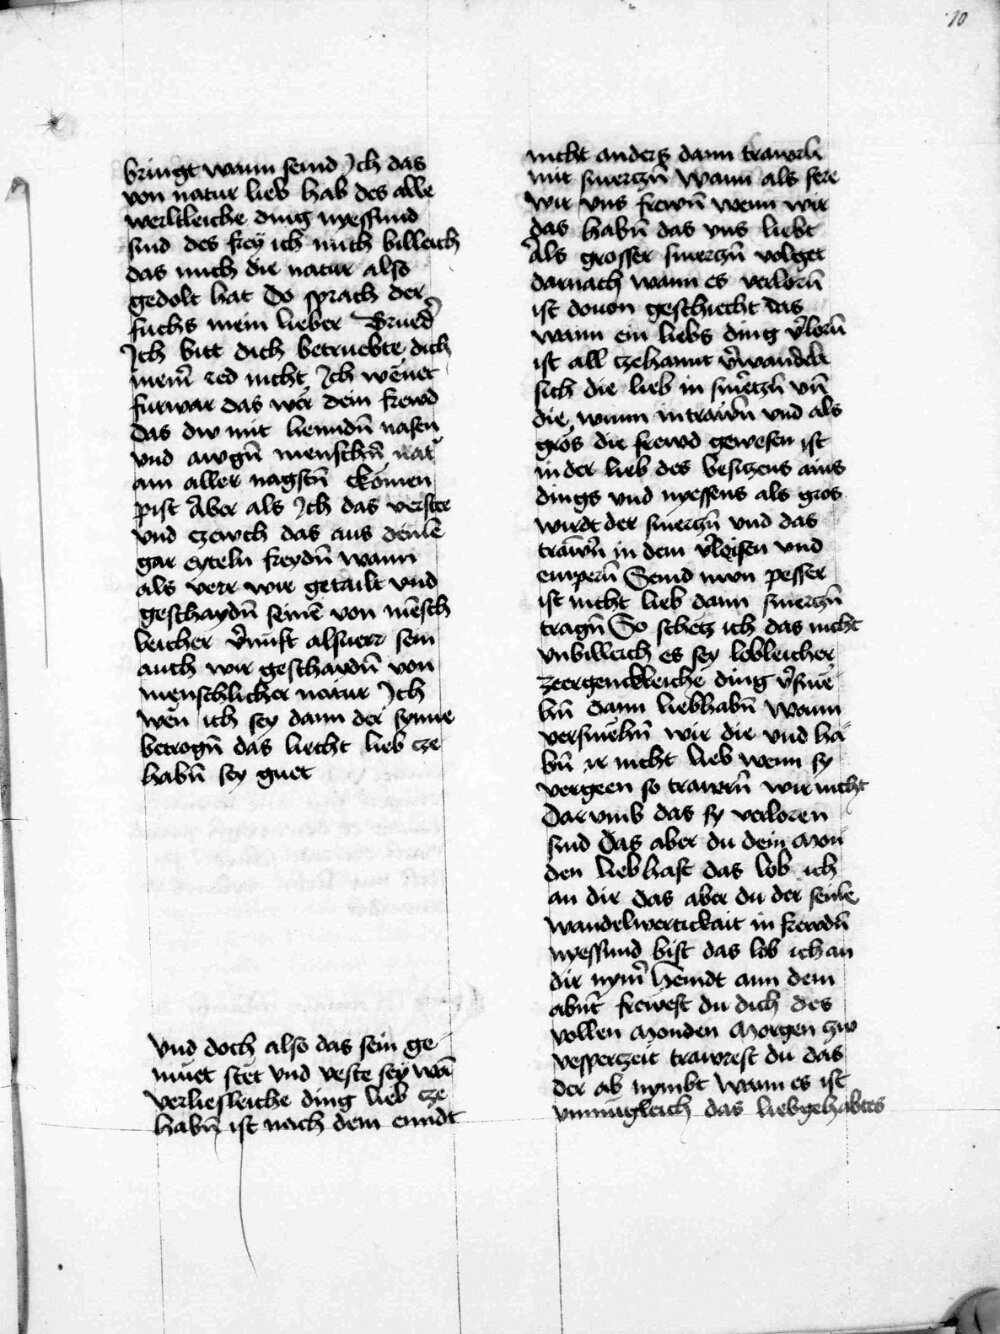 10
bringt wann seind Ich das
von natur lieb hab des alle
werltleiche ding nyessund
sind des frey ich mich billeich
das mich die natur also
gedolt hat Do sprach der
fuchs mein lieber Brued̄
Ich bitt dich betruebte dich
mein̄ red nicht Ich wēnet
furwar das wer dein frewd
das dw mit henndn̄ nasen
vnd awgn̄ menschn̄ nat
am aller nagstn̄ kömen
pist Aber als Ich das verstee
vnd czewch das aus deinē
gar eyteln freydn̄ wann
als verr wir getailt vnd
geschaydn̄ seinē von mēsch
leicher v̄nūft alsuerr sein
auch wir geschaydn̄ von
menschlicher natur Ich
wen ich sey dann der synne
betrogn̄ das liecht lieb cze
habn̄ sey guet
vnd doch also das sein ge
müet stet vnd veste sey wā
verliesleiche ding lieb cze
habn̄ ist nach dem ennde
nicht anders dann trawrn̄
mit smerczn̄ Wann als sere
wir vns frewn̄ wenn wir
das habn̄ das vns liebt
Als grosser smerczn̄ volget
darnach wann es verlorn̄
ist douon geschiecht das
wann ein liebs ding v̄lorn̄
ist all czehannt v̄wandelt
sich die lieb in smerczn̄ vn̄
die wunn in trawrn̄ vnd als
gros die frewd gewesen ist
in der lieb des besiczens ains
dings vnd nyessens als gros
wirdt der smerczn̄ vnd das
trawrn̄ in dem v̄leisen vnd
empern̄ Seind nvn pesser
ist nicht lieb dann smerczn̄
tragn̄ So schecz ich das nicht
vnbilleich es sey lobleicher
zeergenckleiche ding v̄smē
hn̄ dann liebhabn̄ Wann
versmehn̄ wir die vnd ha
bn̄ ir nicht lieb wenn sy
vergeen so trawrn̄ wir nicht
Darumb das sy verloren
sind Das aber du dein Mon
den liebhast das lob ich
an dir das aber du der seinē
wandelwertickait in frewdn̄
nyessund bist das lob ich an
dir nym̄ Heindt ann dem
abnt frewest du dich des
vollen Monden Morgen zw
vesperczeit trawrest du das
der ab nymbt wann es ist
vnmugleich das liebgehabtes